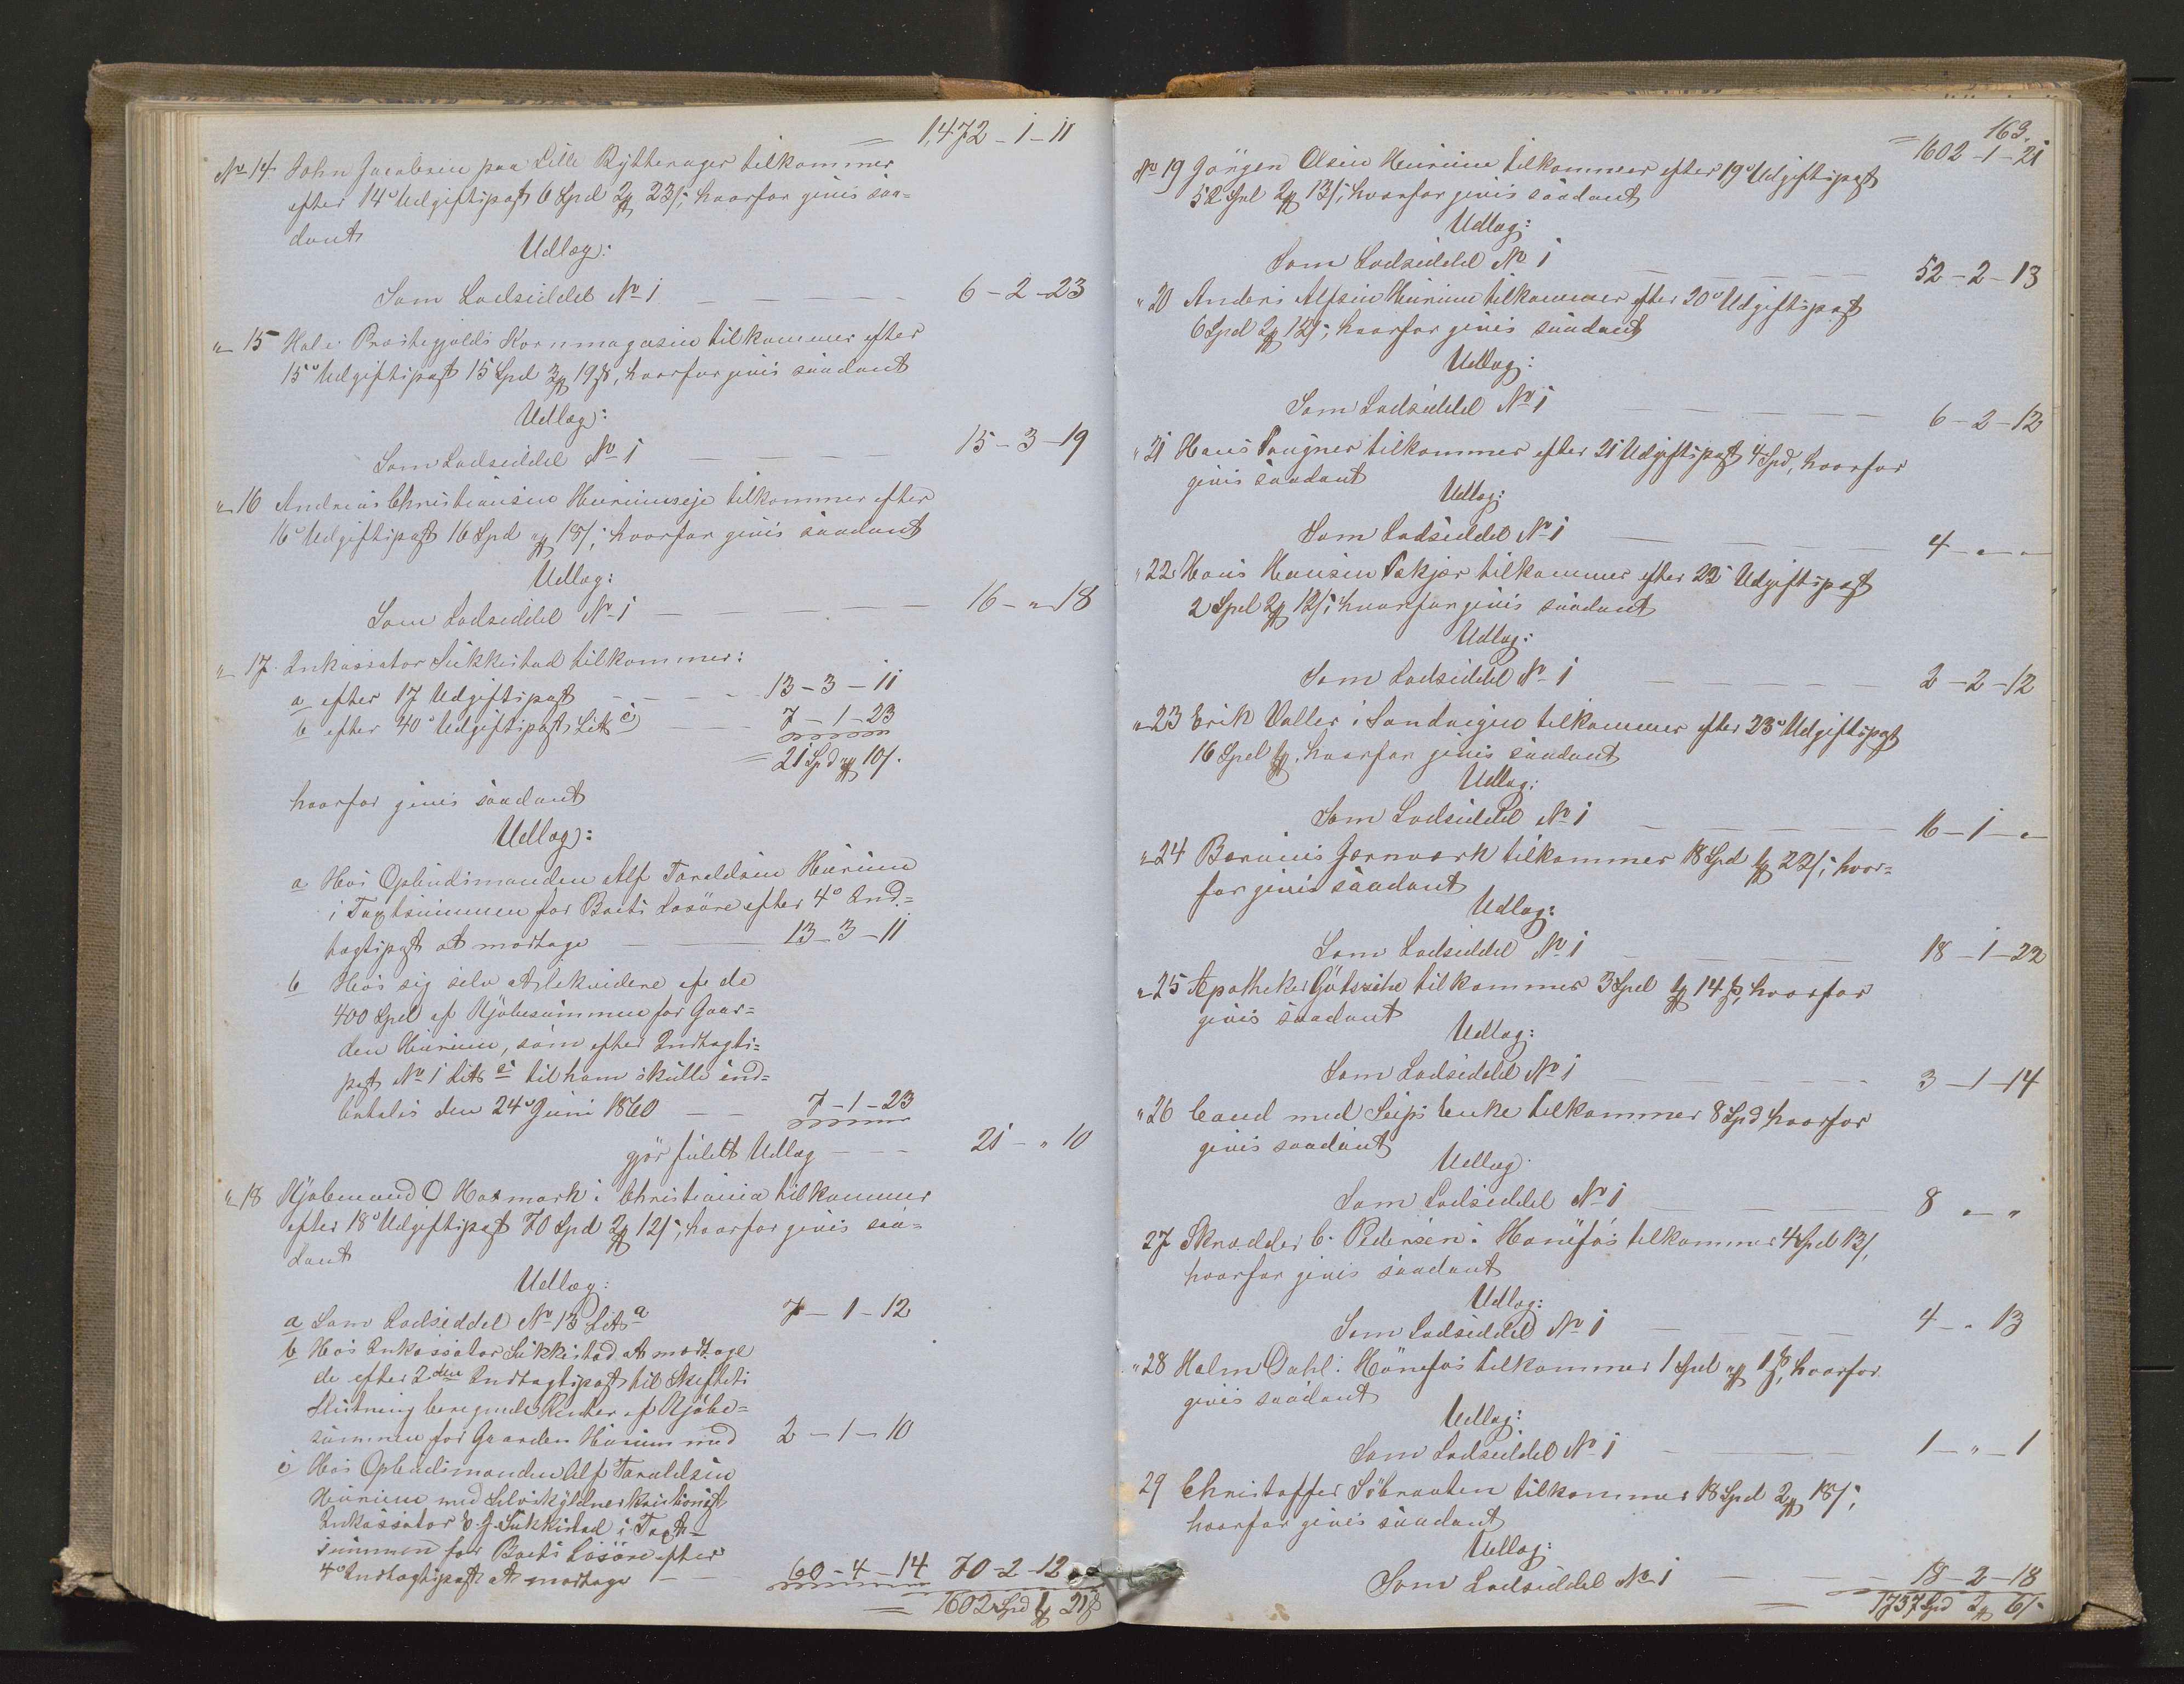 = 1,472 - 1 - 11
No 14 John Jacobsen paa Lille Rytterager tilkommer
efter 14o Udgiftspost 6 Spd 2 # 23 s; hvorfor gives saa=
dant
Udlæg:
Som Lodseddel No 1 — — — — 6 - 2 - 23
" 15 Hole Præstegjelds Kornmagasin tilkommer efter
15o Udgiftspost 15 Spd 3 # 19 s, hvorfor gives saadant
Udlæg:
Som Lodseddel No 1 — — — 15 - 3 - 19
" 16 Andreas Christiansen Hurumseje tilkommer efter
16o Udgiftspost 16 Spd " # 18 s; hvorfor gives saadant
Udlæg:
Som Lodseddel No 1 — — — — — 16 - " - 18
" 17. Inkassator Sukkestad tilkommer:
a efter 17 Udgiftspost — — — 13 - 3 - 11
b efter 40o Udgiftspost Litr c) — — 7 - 1 - 23
= 21 Spd " # 10 s.
hvorfor gives saadant
Udlæg:
a Hos Opbudsmanden Alf Taraldsen Hurum
i Taxtsummen for Boets Løsöre efter 4o Ind=
tægtspost at modtage — — 13 - 3 - 11
b Hos sig selv at likvidere af de
400 Spd af Kjöbesummen for Gaar=
den Hurum, som efter Indtægts=
post No 1 Litr c til ham skulle ind=
betales den 24o Juni 1860 — — 7 - 1 - 23
gjör fuldt Udlæg — — — 21 - " 10
" 18 Kjöbmand O Hasmark i Christiania tilkommer
efter 18o Udgiftspost 70 Spd 2 # 12 s; hvorfor gives saa=
dant
Udlæg:
a Som Lodseddel No 13 Litr a 7 - 1 - 12
b Hos Inkassator Sukkestad at modtage
de efter 2den Indtægtspost til Skiftets
Slutning beregnede Renter af Kjöbe=
summen for Gaarden Hurum med 2 - 1 - 10
c Hos Opbudsmanden Alf Taraldsen
Hurum med Selvskyldnerkautionist
Inkassator E. J. Sukkestad i Taxt=
summen for Boets Lösöre efter
4o Indtægtspost at modtage — — 60 - 4 - 14 70 - 2 - 12
= 1602 Spd 1 # 21 s
163.
= 1602 - 1 - 21
No 19 Jörgen Olsen Hurum tilkommer efter 19o Udgiftspost
52 Spd 2 # 13 s; hvorfor gives saadant
Udlæg:
Som Lodseddel No 1 — — — — — 52 - 2 - 13
" 20 Anders Alfsen Hurum tilkommer efter 20o Udgiftspost
6 Spd 2 # 12 s; hvorfor gives saadant
Udlæg:
Som Lodseddel No 1 — — — — — 6 - 2 - 12
" 21 Hans tilkommer efter 21 Udgiftspost 4 Spd, hvorfor
gives saadant
Udlæg:
Som Lodseddel No 1 — — — — — 4 - " - "
" 22 Hans Hansen tilkommer efter 22 Udgiftspost
2 Spd 2 # 12 s; hvorfor gives saadant
Udlæg:
Som Lodseddel No 1 — — — — — 2 - 2 - 12
" 23 Erik Valler i Sandvigen tilkommer efter 23o Udgiftspost
16 Spd 1 #. hvorfor gives saadant
Udlæg:
Som Lodseddel No 1 — — — — — 16 - 1 - "
" 24 Bærums Jernværk tilkommer 18 Spd 1 # 22 s; hvor=
for gives saadant
Udlæg:
Som Lodseddel No 1 — — — — 18 - 1 - 22
" 25 Apotheker Götzsche tilkommer 3 Spd 1 # 14 s, hvorfor
gives saadant
Udlæg:
Som Lodseddel No 1 — — — — — 3 - 1 - 14
" 26 Cand med Seips Enke tilkommer 8 Spd hvorfor
gives saadant
Udlæg
Som Lodseddel No 1 — — — — — 8 " - "
27 Skrædder C. Pedersen i Hönefos tilkommer 4 Spd 13 s,
hvorfor gives saadant
Udlæg:
Som Lodseddel No 1 — — — — 4 - " 13
" 28 Halm Dahl i Hönefos tilkommer 1 Spd " # 1 s, hvorfor
gives saadant
Udlæg:
Som Lodseddel No 1 — — — — 1 - " - 1
29 Christoffer Söbraaten tilkommer 18 Spd 2 # 18 s;
hvorfor gives saadant
Udlæg:
Som Lodseddel No 1 — — — 18 - 2 - 18
= 1737 Spd 2 # 6 s.